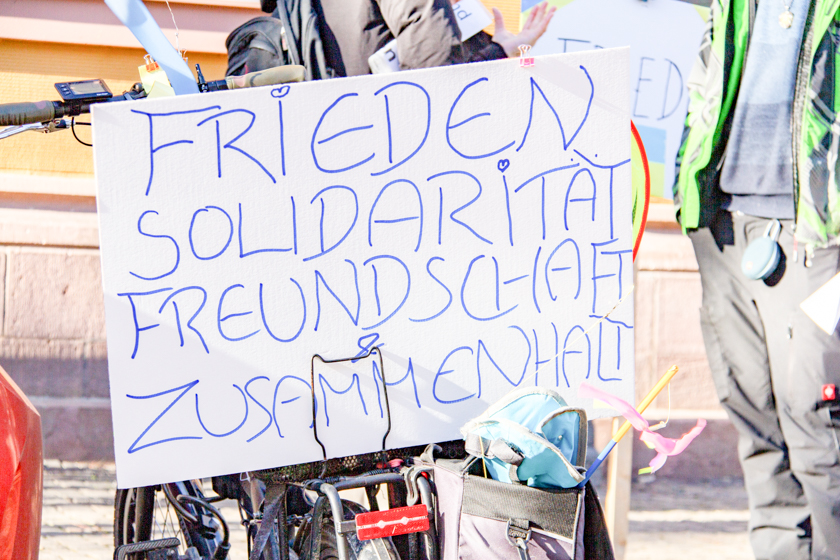 FRiEDEN
SOLIDARiTÄT
FREUNDSCHAFT
&
ZUSAMMENHALT